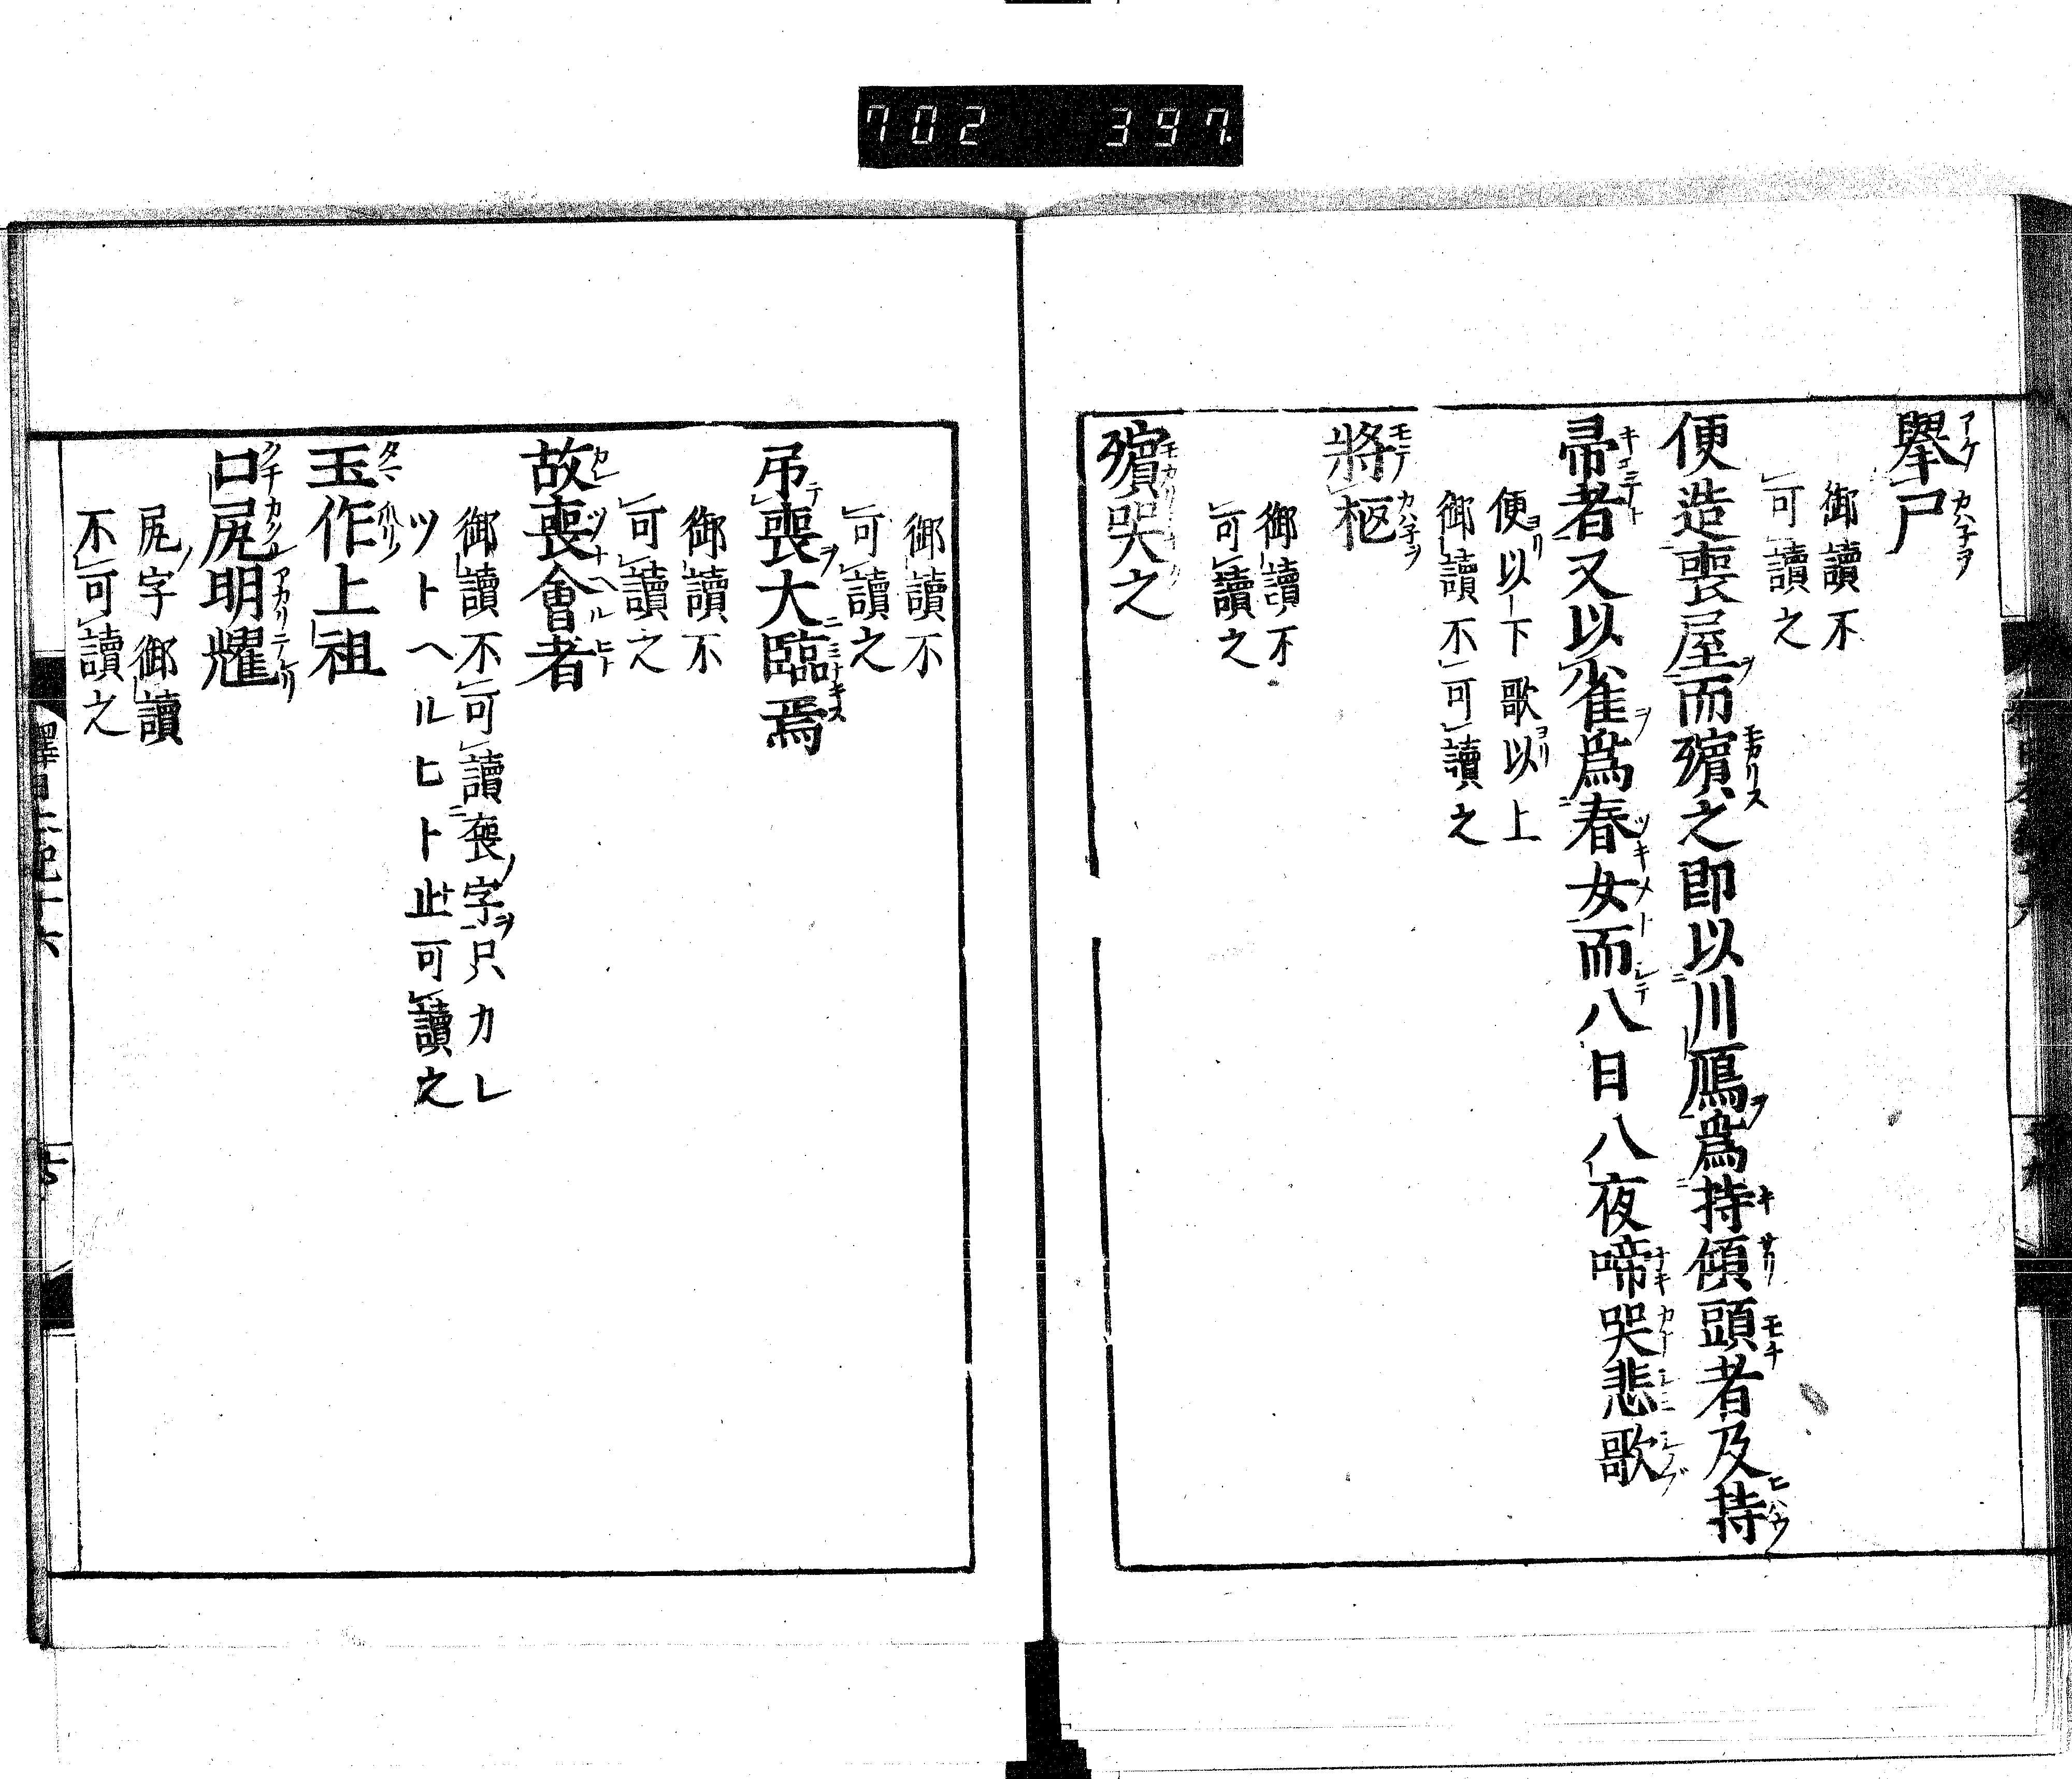 702 397
擧尸
御讀不
可讀之
便造喪屋而殯之即以川鴈為持傾頭者及持
帚者又以雀為舂女而八日八夜啼哭悲歌
便以下歌以上
御讀不可讀之
將柩
御讀不
可讀之
殯哭之
御讀不
可讀之
弔喪大臨焉
御讀不
可讀之
故喪會者
御讀不可讀喪字只カレ
ツトヘルヒト止可讀之
玉作上祖
口尻明耀
尻字御讀
不可讀之